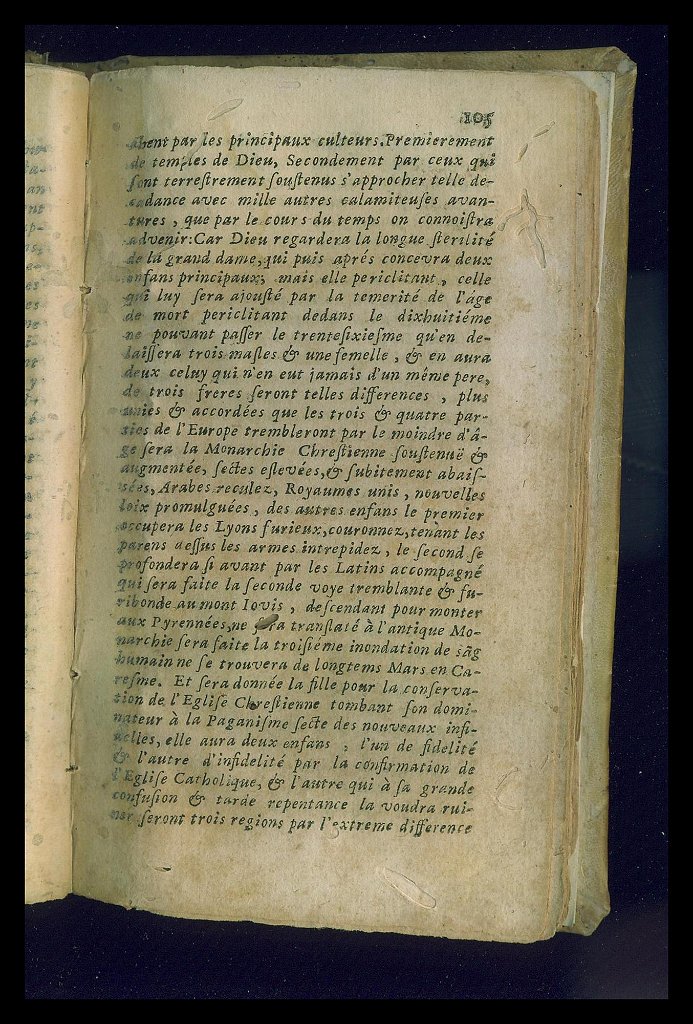 105
chent par les principaux culteurs. Premierement
de temples de Dieu, Secondement par ceux qui
sont terrestrement soustenus s'approcher telle de-
cadance avec mille autres calamiteuses avan-
tures, que par le cours du temps on connoistra
advenir: Car Dieu regardera la longue sterilité
de la grand dame, qui puis aprés concevra deux
enfans principaux; mais elle periclitant, celle
qui luy sera ajousté par la temerité de l'âge
de mort periclitant dedans le dixhuitiéme
ne pouvant passer le trentesixiesme qu'en de-
laissera trois masles & une femelle, & en aura
deux celuy qui n'en eut jamais d'un méme pere,
de trois freres seront telles differences, plus
unies & accordées que les trois & quatre par-
ties de l'Europe trembleront par le moindre d'â-
ge sera la Monarchie Chrestienne soustenuë &
augmentée, sectes eslevées, & subitement abais-
sées, Arabes reculez, Royaumes unis, nouvelles
loix promulguées, des autres enfans le premier
occupera les Lyons furieux, couronnez, tenant les
parens dessus les armes intrepidez, le second se
profondera si avant par les Latins accompagné
qui sera faite la seconde voye tremblante & fu-
ribonde au mont Iovis, descendant pour monter
aux Pyrennées, ne sera translaté à l'antique Mo-
narchie sera faite la troisiéme inondation de sãg
humain ne se trouvera de longtems Mars en Ca-
resme. Et sera donnée la fille pour la conserva-
tion de l'Eglise Chrestienne tombant son domi-
nateur à la Paganisme secte des nouveaux infi-
delles, elle aura deux enfans, l'un de fidelité
& l'autre d'infidelité par la confirmation de
l'Eglise Catholique, & l'autre qui à sa grande
confusion & tarde repentance la voudra rui-
ner seront trois regions par l'extreme difference